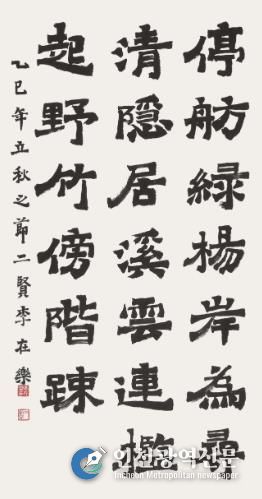 停舫綠楊岸為尋
清隱居溪雲連檻
起野竹傍階踈
乙巳年立秋之節二賢李在樂
인천광역신문
Incheon Metropolitan newspaper